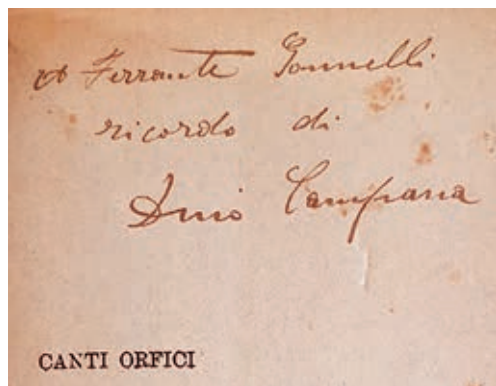 A Ferrante Gonnelli
ricordo di
Dino Campana
CANTI ORFICI